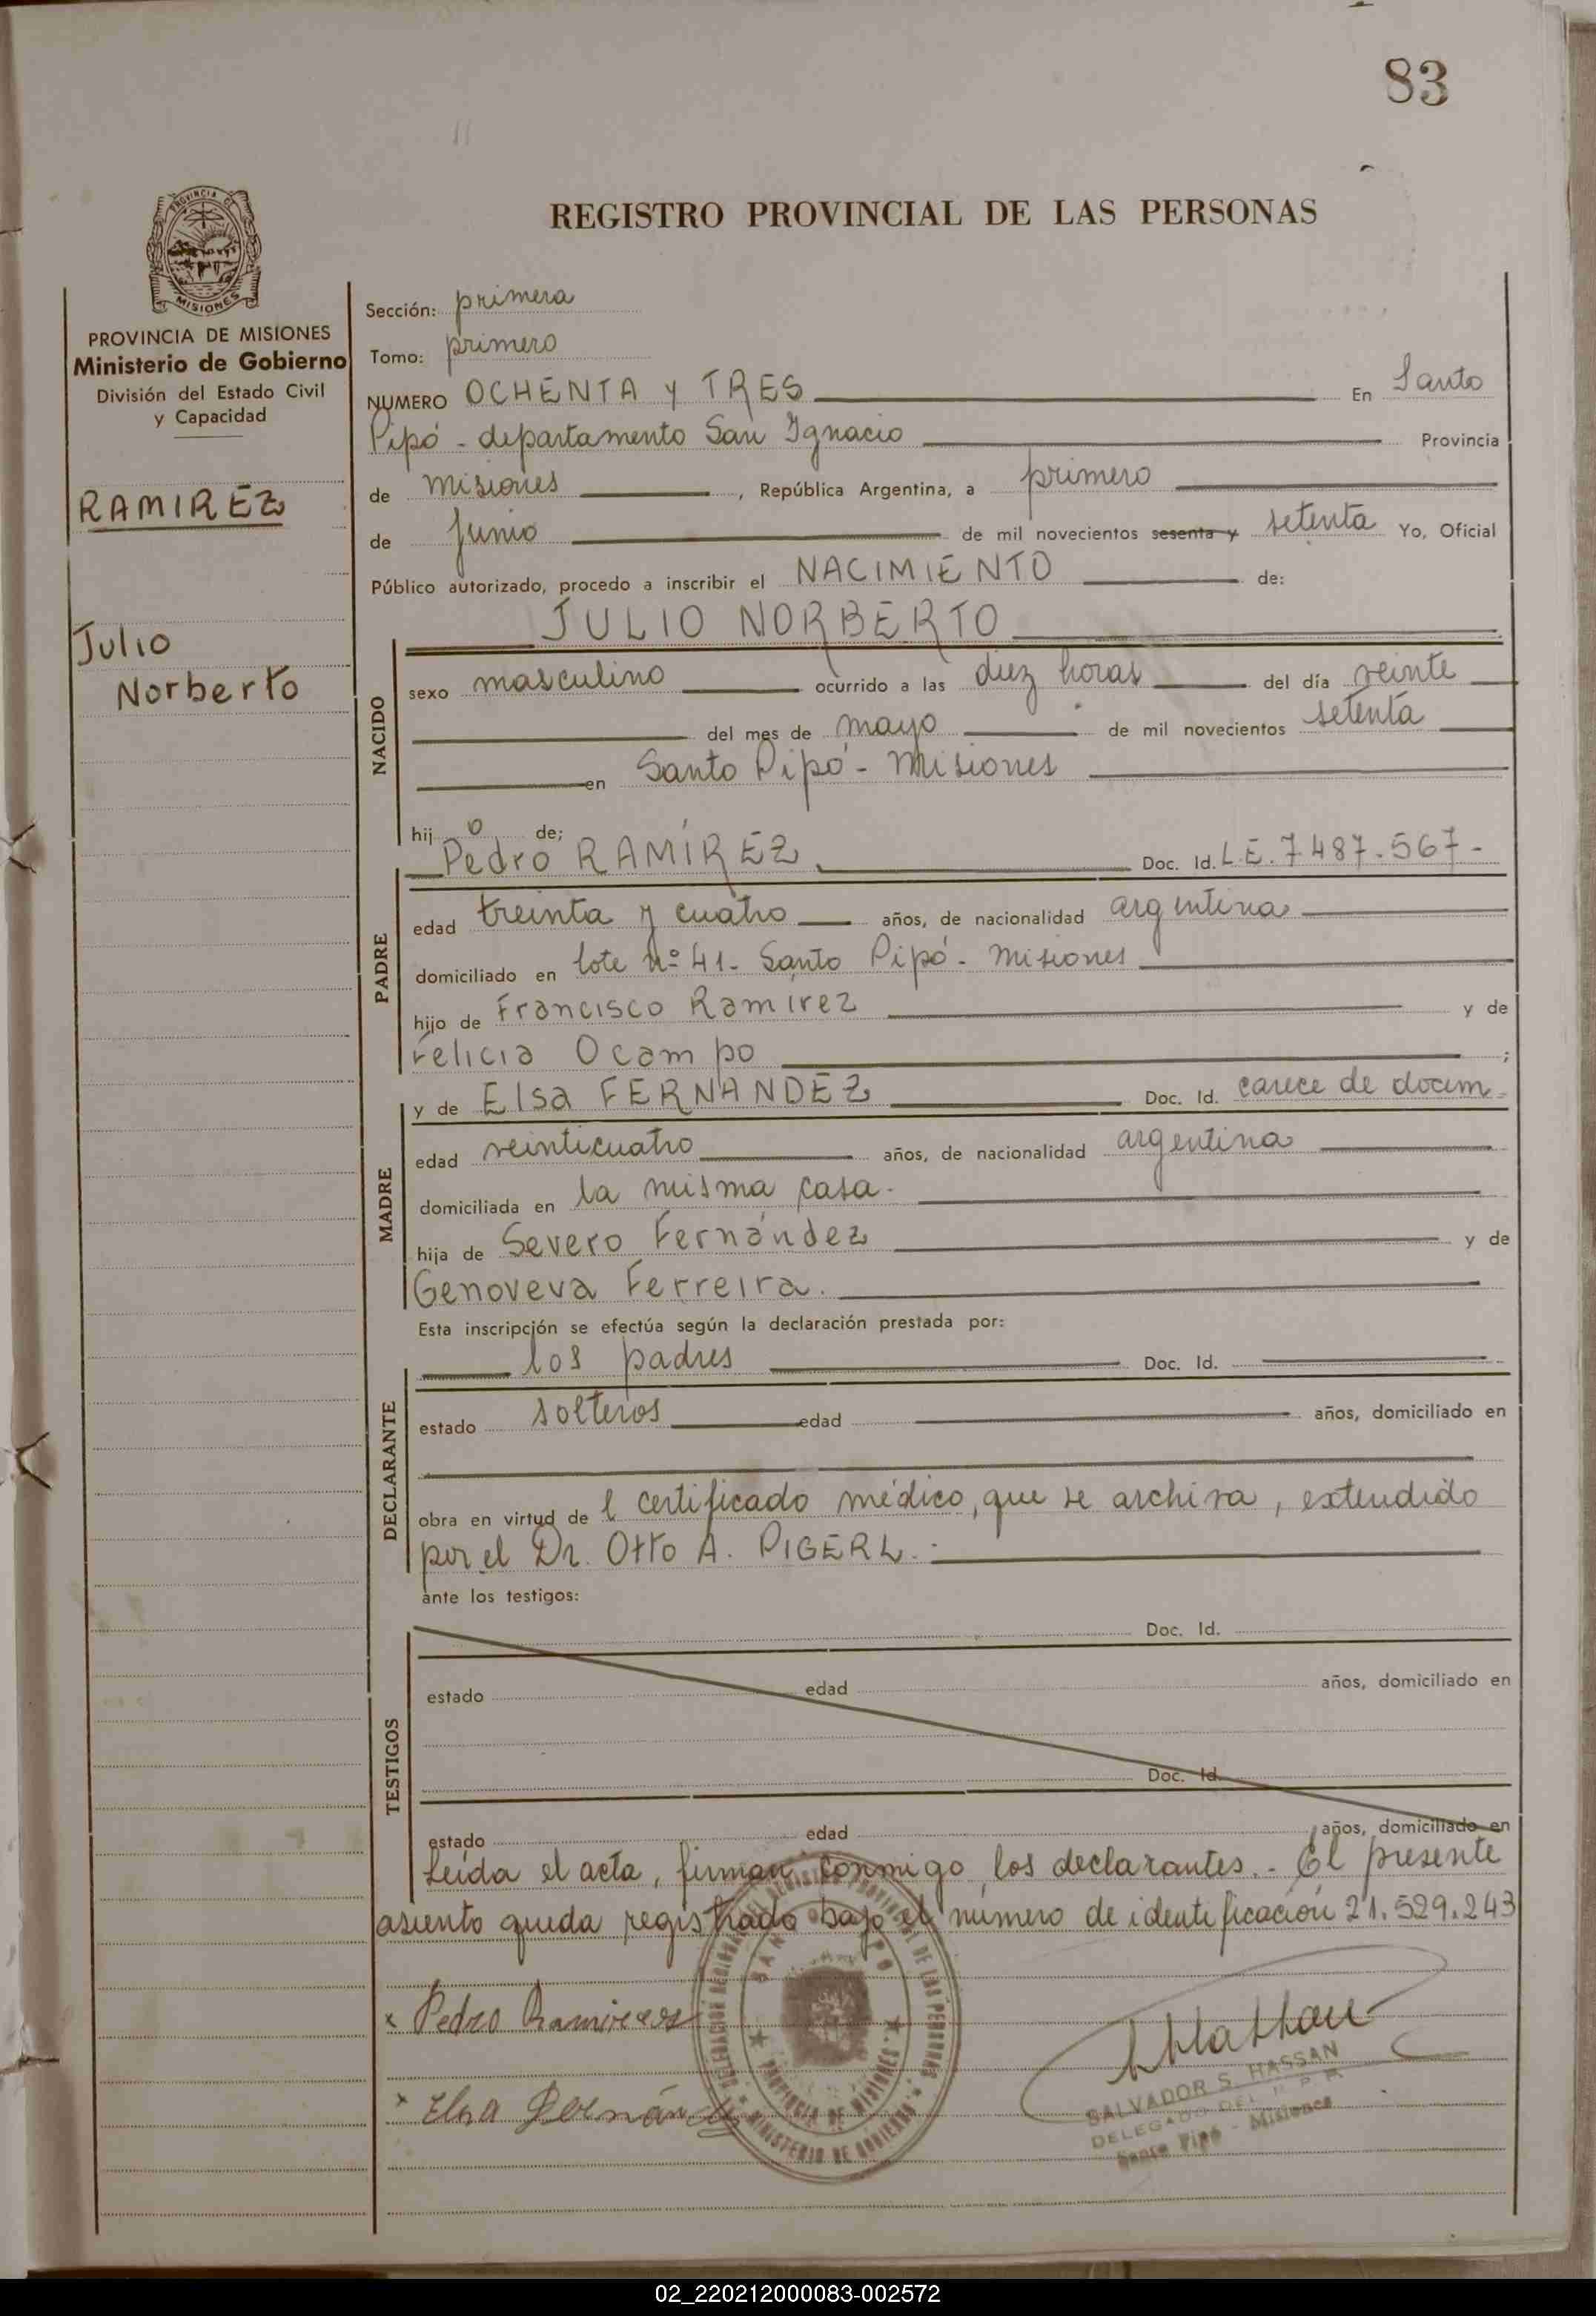 83
PROVINCIA DE
MISIONES
REGISTRO PROVINCIAL DE LAS PERSONAS
PROVINCIA DE MISIONES
Ministerio de Gobierno
División del Estado Civil
y Capacidad
RAMIREZ
Julio
Norberto
Sección: primera
Tomo: primero
NUMERO OCHENTA y TRES En Santo
Pipó - departamento San Ignacio Provincia
de Misiones, República Argentina, a primero
de Junio de mil novecientos sesenta y setenta Yo, Oficial
Público autorizado, procedo a inscribir el NACIMIENTO de:
JULIO NORBERTO
NACIDO
sexo masculino ocurrido a las diez horas del día veinte
del mes de mayo de mil novecientos setenta
en Santo Pipó - Misiones
hijo de;
Pedro RAMÍREZ Doc. Id. L.E. 7.487.567-
PADRE
edad treinta y cuatro años, de nacionalidad argentina
domiciliado en lote nº 41- Santo Pipó - Misiones
hijo de Francisco Ramírez y de
Felicia Ocampo ;
y de Elsa FERNANDEZ Doc. Id. carece de docum.
MADRE
edad veinticuatro años, de nacionalidad argentina
domiciliada en la misma casa.
hija de Severo Fernández y de
Genoveva Ferreira.
Esta inscripción se efectúa según la declaración prestada por:
los padres Doc. Id.
DECLARANTE
estado solteros edad años, domiciliado en
obra en virtud del certificado médico, que se archiva, extendido
por el Dr. Otto A. PIGERL.-
ante los testigos:
Doc. Id.
TESTIGOS
estado edad años, domiciliado en
Doc. Id.
estado edad años, domiciliado en
Leída el acta, firman conmigo los declarantes.- El presente
asiento queda registrado bajo el número de identificación 21.529.243
x Pedro Ramirez
x Elsa Fernández
SANTO PIPO
PROVINCIA DE MISIONES
MINISTERIO DE GOBIERNO
SALVADOR S. HASSAN
DELEGADO DEL R. P. P.
Santo Pipó - Misiones
02_220212000083-002572